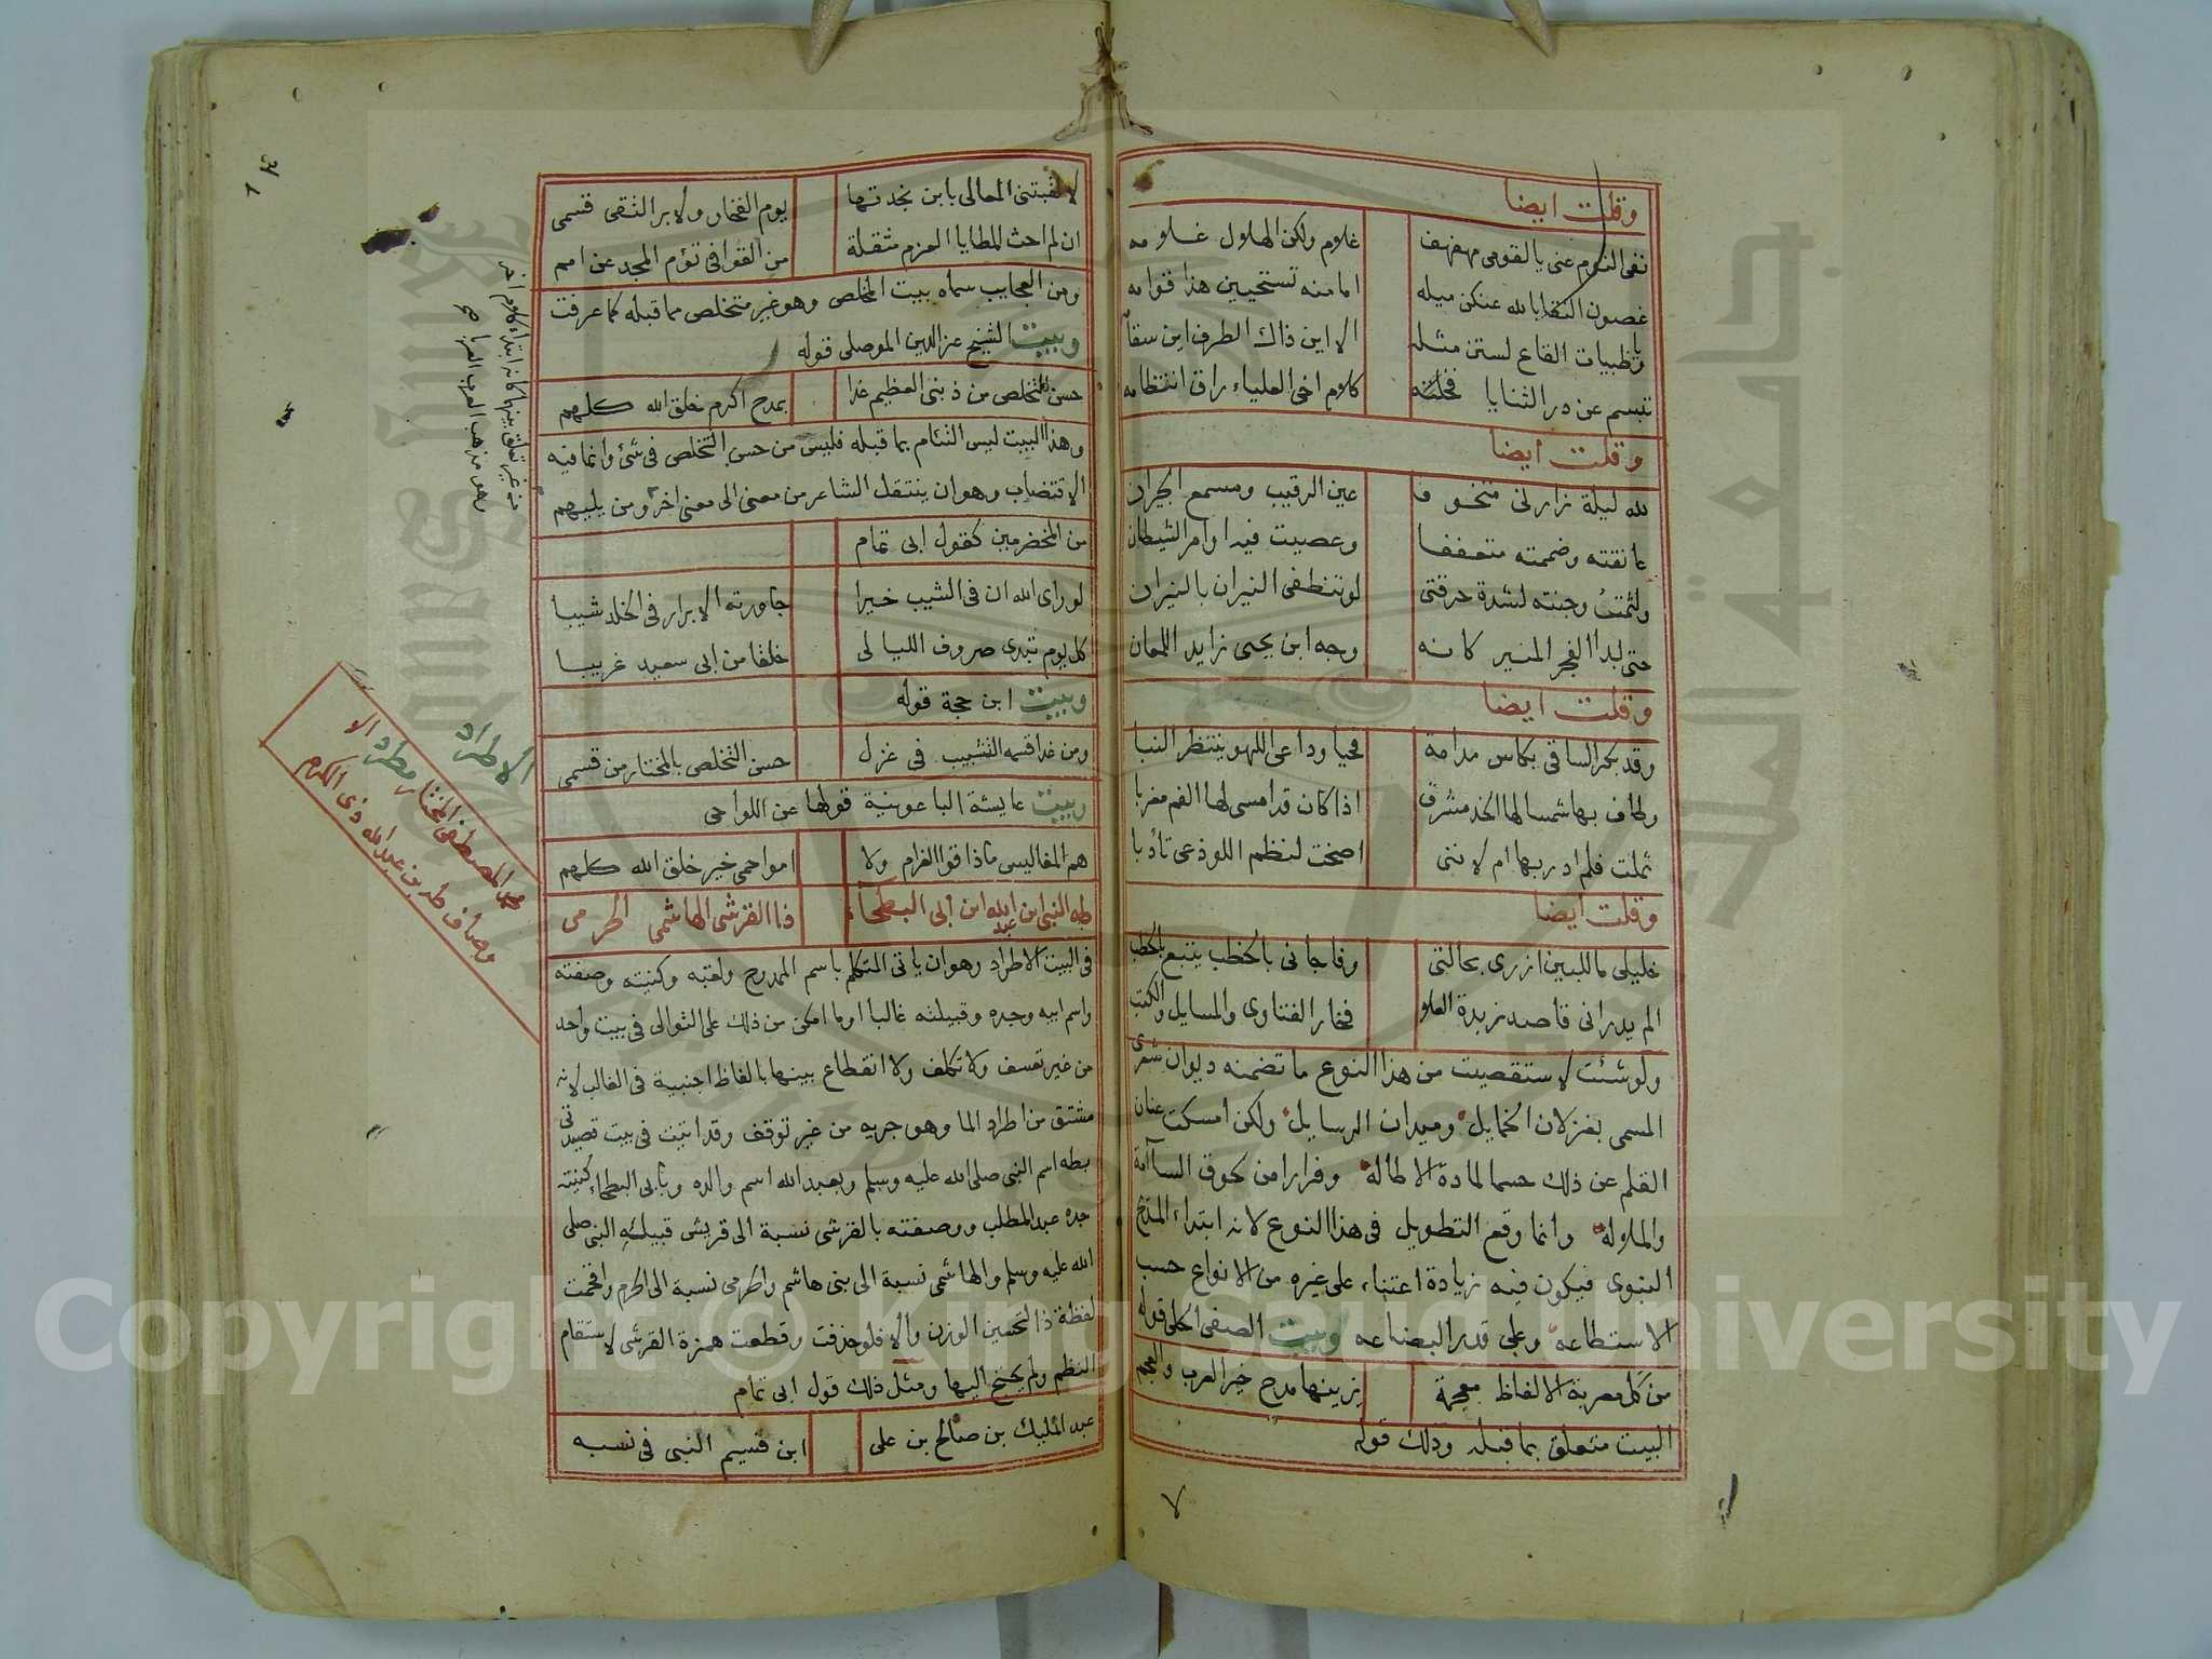 وقلت ايضا
نفى النوم عنى يالقومى مهفهف غلام ولكن الهلال غلامه
غصون النقا بالله عنكن ميله اما منه تستحيين هذا قوامه
وياظبيات القاع لستن مثله الا اين ذاك الطرف اين سقامه
تبسم عن در الثنايا فخلته كلام اخى العلياء راق انتظامه
وقلت ايضا
لله ليلة زارنى متخوفا عين الرقيب ومسمع الجيران
عانقته وضممته متعففا وعصيت فيه اوامر الشيطان
ولثمت وجنته لشدة حرقتى لو تنطفى النيران بالنيران
حتى بدا الفجر المنير كانه وجه ابن يحيى زايد اللمعان
وقلت ايضا
وقد بكر الساقى بكاس مدامة محيا وداعى اللهو ينتظر النبا
وطاف بها شمسا لها الخد مشرق اذا كان قد امسى لها الفم مغربا
ثملت فلم ادر بها ام لاننى اصخت لنظم اللوذعى تأدبا
وقلت ايضا
خليلى ما للبين ازرى بحالتى وفاجانى بالخطب يتبع بالخطب
الم يدر انى قاصد زبدة العلا فخار الفتاوى والمسايل والكتب
ولو شئت لاستقصيت من هذا النوع ما تضمنه ديوان شعرى
المسمى بغزلان الخمايل وميدان الرسايل ولكن امسكت عنان
القلم عن ذلك حسما لمادة الاطالة وفرارا من لحوق السآمة
والملالة وانما وقع التطويل فى هذا النوع لانه ابتداء المدح
النبوى فيكون فيه زيادة اعتناء على غيره من الانواع حسب
الاستطاعه وعلى قدر البضاعه وبيت الصفى الحلى قوله
من كل معربة الالفاظ معجمة يزينها مدح خير العرب والعجم
البيت متعلق بما قبله وذلك قوله
٧
٦٣
لا لقبتنى المعالى بابن بجدتها يوم الفخار ولا بر التقى قسمى
ان لم احث المطايا العزم مثقلة من القوافى تؤم المجد عن امم
ومن العجايب سماه بيت المخلص وهو غير متخلص مما قبله كما عرفت
وبيت الشيخ عز الدين الموصلى قوله
حسن التخلص من ذنبى العظيم غدا بمدح اكرم خلق الله كلهم
وهذا البيت ليس التئام بما قبله فليس من حسن التخلص فى شئ وانما فيه
الاقتضاب وهو ان ينتقل الشاعر من معنى الى معنى اخر ومن يليهم
من المخضرمين كقول ابى تمام
لو راى الله ان فى الشيب خيرا جاورته الابرار فى الخلد شيبا
كل يوم تبدى صروف الليالى خلقا من ابى سعيد غريبا
وبيت ابن حجة قوله
ومن غدا قسمه التشبيب فى غزل حسن التخلص بالمختار من قسمى
وبيت عايشة الباعونية قولها عن اللواحى
هم المفاليس ماذاقوا الغرام ولا امواحمى خير خلق الله كلهم
طه النبى ابن عبد الله ابن ابى البطحاء ذا القرشى الهاشمى الحرمى
فى البيت الاطراد وهو ان ياتى المتكلم باسم الممدوح ولقبه وكنيته وصفته
واسم ابيه وجده وقبيلته غالبا او ما امكن من ذلك على التوالى فى بيت واحد
من غير تعسف ولا تكلف ولا انقطاع بينها بالفاظ اجنبية فى الغالب لانه
مشتق من اطراد الما وهو جريه من غير توقف وقد اتيت فى بيت قصيدتى
بطه اسم النبى صلى الله عليه وسلم وبعبد الله اسم والده وبأبى البطحاء كنيته
جده عبد المطلب ووصفته بالقرشى نسبة الى قريش قبيلة النبى صلى
الله عليه وسلم والهاشمى نسبة الى بنى هاشم والحرمى نسبة الى الحرم واقحمت
لفظة ذا لتحسين الوزن والا فلو حذفت وقطعت همزة القرشى لاستقام
النظم ولم يحتج اليها ومثل ذلك قول ابى تمام
عبد المليك بن صالح بن على ابن قسيم النبى فى نسبه
من غير تعلق بينهما كانه ابتداء كلام اخر
وهو مذهب العرب العربا صح
الاطراد
محمد المصطفى المختار مطرد الا
وصاف طه بن عبد الله ذى الكرم
جامعة الملك سعود
Copyright © King Saud University